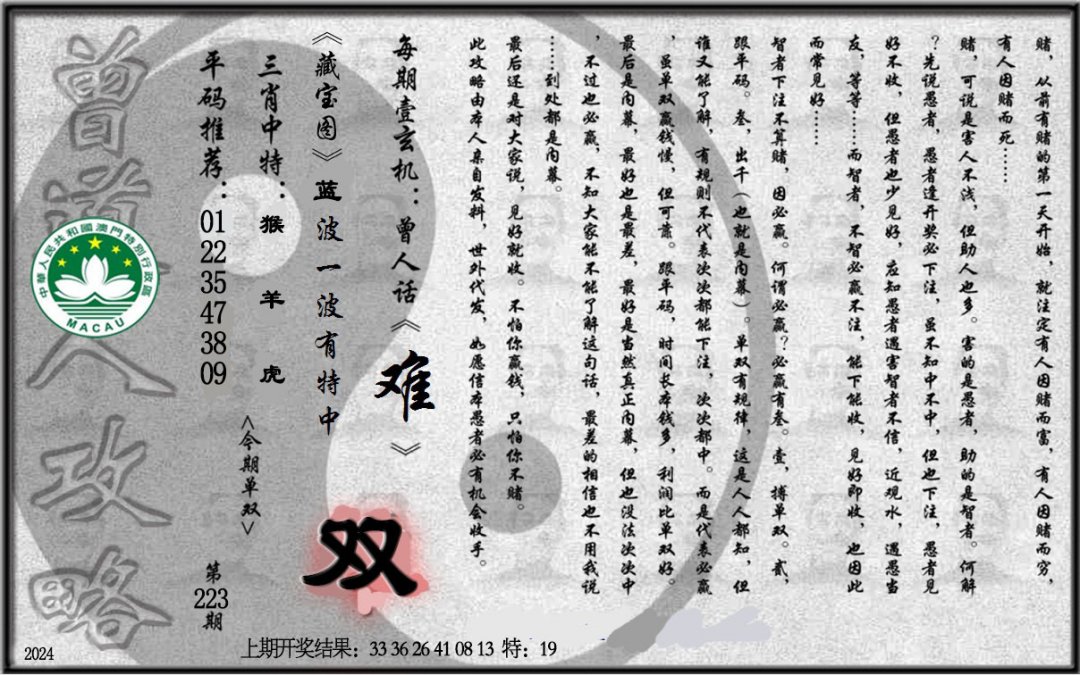 赌,从前有赌的第一天开始,就注定有人因赌而富,有人因赌而穷,
有人因赌而死……
赌,可说是害人不浅,但助人也多。害的是愚者,助的是智者。何解
?先说愚者,愚者逢开奖必下注,虽不知中不中,但也下注,愚者见
好不收,但愚者也少见好,应知愚者遇害智者不信,近观水,遇愚当
友,等等……而智者,不智必赢不注,能下能收,见好即收,也因此
而常见好……
智者下注不算赌,因必赢。何谓必赢?必赢有叁。壹,搏单双。贰,
跟平码。叁,出千(也就是内幕)。单双有规律,这是人人都知,但
谁又能了解,有规则不代表次次都能下注,次次都中。而是代表必赢
,虽单双赢钱慢,但可靠。跟平码,时间长本钱多,利润比单双好。
最后是内幕,最好也是最差,最好是当然真正内幕,但也没法次次中
,不过也必赢,不知大家能不能了解这句话,最差的相信也不用我说
……到处都是内幕。
最后还是对大家说,见好就收。不怕你赢钱,只怕你不赌。
此攻略由本人亲自发料,世外代发,如愿信本愚者必有机会收手。
每期壹玄机:曾人话《难》
《藏宝图》蓝波一波有特中
双
三肖中特:猴 羊 虎
<今期单双>
平码推荐:01 22 35 47 38 09
第223期
曾道人攻略
中華人民共和國澳門特別行政區
MACAU
2024
上期开奖结果:33 36 26 41 08 13 特:19